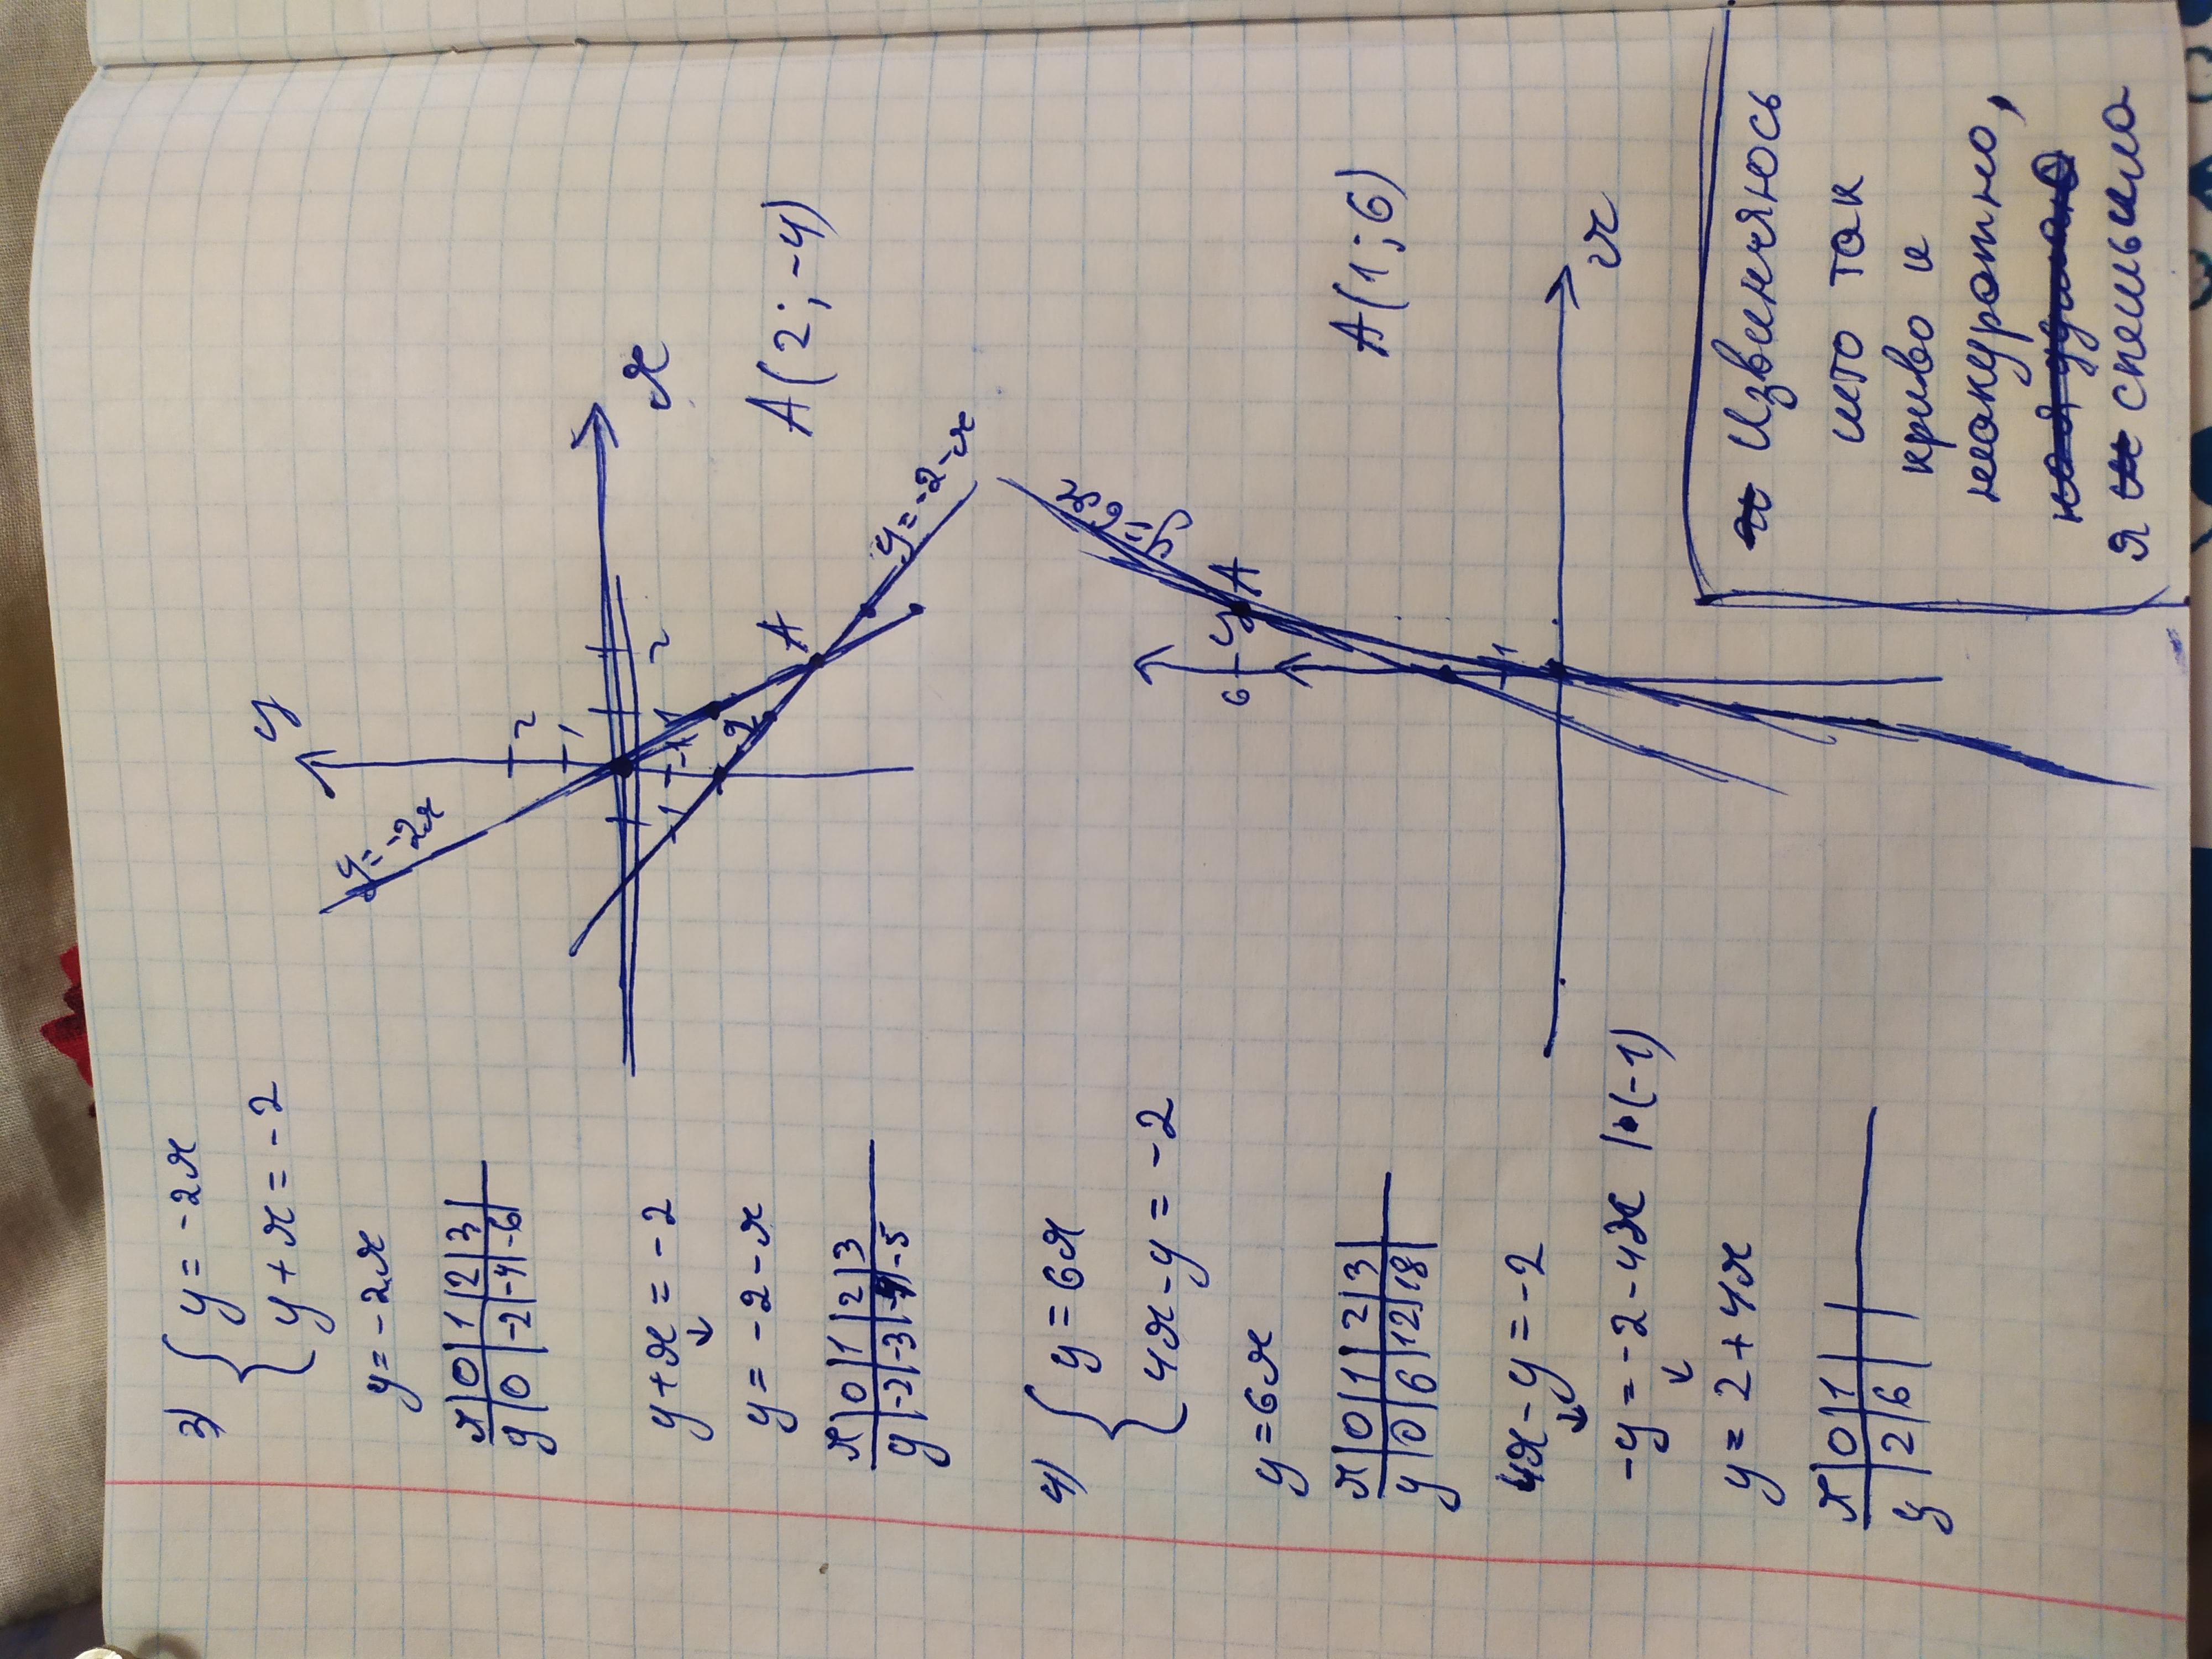 3) { y = -2x
y + x = -2
y = -2x
x | 0 | 1 | 2 | 3 |
y | 0 | -2 | -4 | -6 |
y + x = -2
y = -2 - x
x | 0 | 1 | 2 | 3
y | -2 | -3 | -4 | -5
y
2
1
x
1
2
-1
y = -2x
A
y = -2-x
A(2 ; -4)
4) { y = 6x
4x - y = -2
y = 6x
x | 0 | 1 | 2 | 3 |
y | 0 | 6 | 12 | 18 |
4x - y = -2
-y = -2 - 4x | • (-1)
y = 2 + 4x
x | 0 | 1 |
y | 2 | 6 |
y
6
1
A
y = 6x
x
A(1 ; 6)
Извиняюсь
что так
криво и
неакуратно,
я спешила